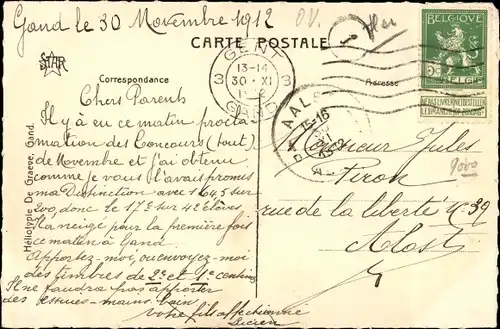 Gand le 30 Novembre 1912
CARTE POSTALE
STAR
Correspondance
Adresse
BELGIQUE
BELGIË
GENT
13-14
30 XI
GAND
3 3
AALST
15-16
1
Chers Parents
Il y a eu ce matin procla-
mation des Concours (tout)
de Novembre et j'ai obtenu
comme je vous l'avais promis
ma Distinction avec 164 sur
200, donc le 17e sur 42 élèves
Il a neigé pour la première fois
ce matin à Gand
Apportez-moi, ou envoyez-moi
des timbres de 2c et 1c centimes
Il ne faudra pas apporter
des essuies-mains bain
votre fils affectionné
Lucien
Monsieur Jules
Piron
rue de la liberté No 39
Alost
Héliotypie De Graeve, Gand.